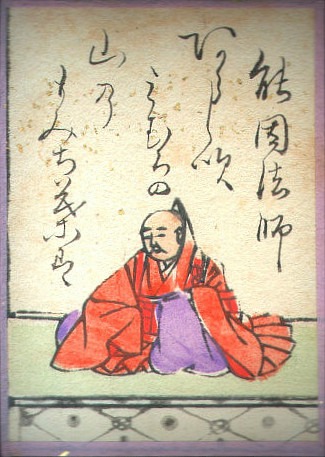 能因法師
あらし吹
みむろの
山乃
もみち葉は